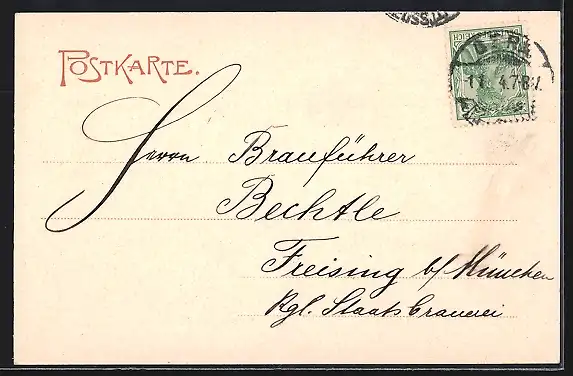 POSTKARTE.
GERA
Herrn Brauführer
Bechtle
Freising b/ München
Kgl. Staatsbrauerei